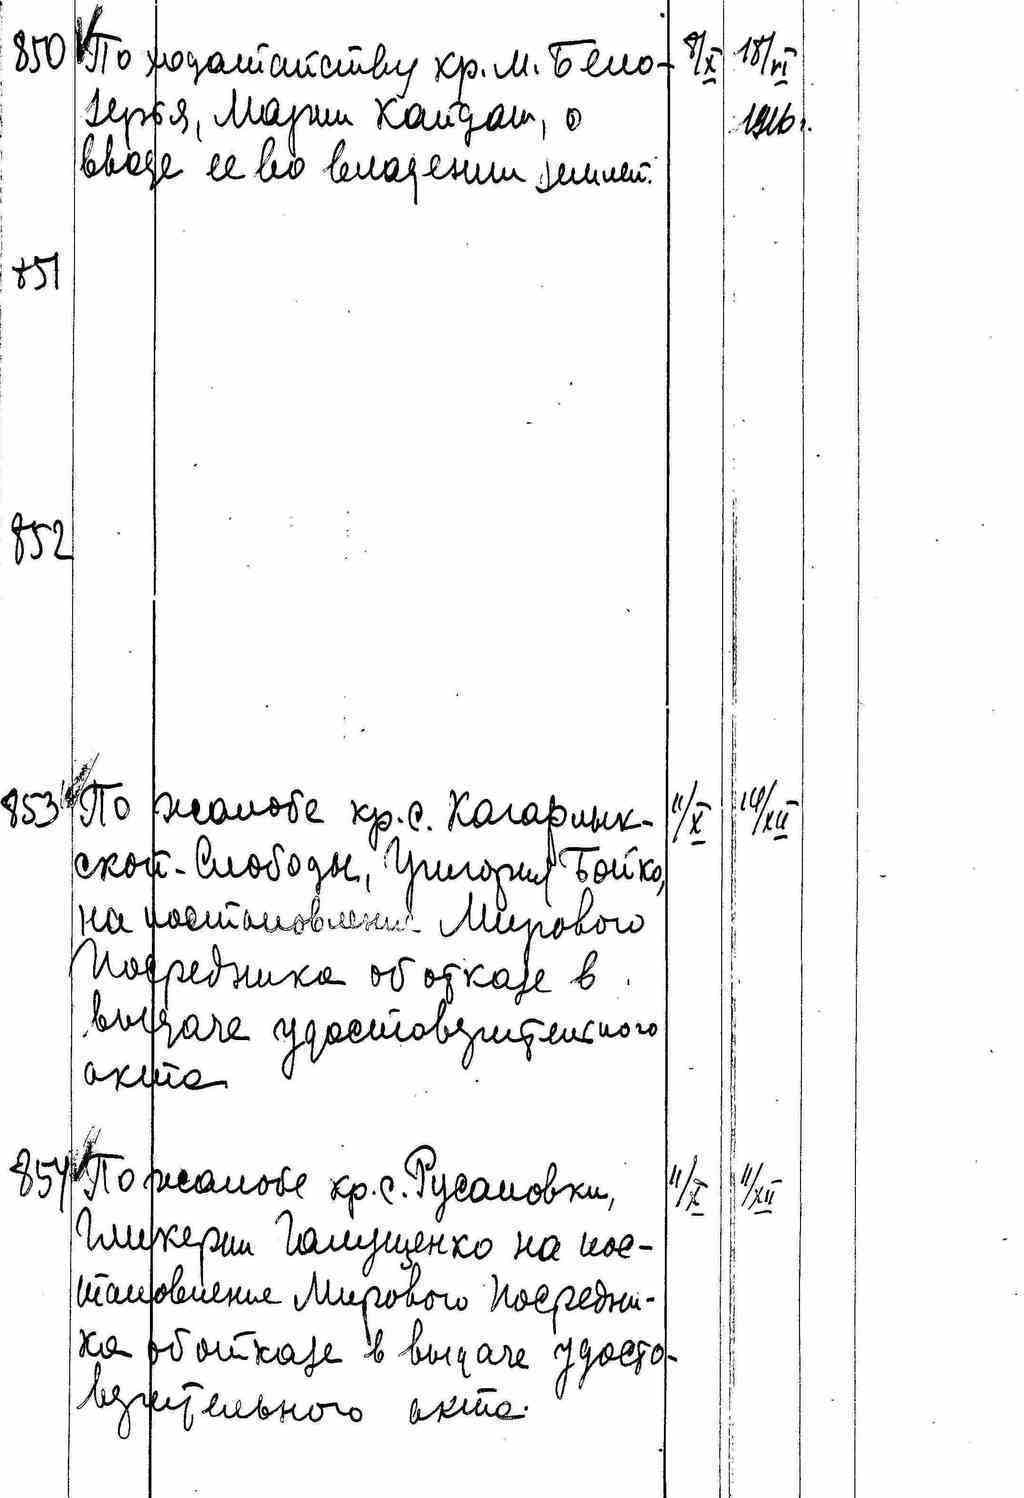 850 По ходатайству кр. м. Бело- 8/X 18/VI
зерья, Марии Кайдаш, о 1916 г.
вводе ее во владении землей.
851
852
853 По жалобе кр. с. Кагарлык- 11/X /XII
ской-Слободы, Григория Бойко,
на постановление Мирового
Посредника об отказе в
выдаче удостоверительного
акта.
854 По жалобе кр. с. Русановки, 11/X 11/XII
Гликерии Галущенко на пос-
тановление Мирового Посредни-
ка об отказе в выдаче удосто-
верительного акта.